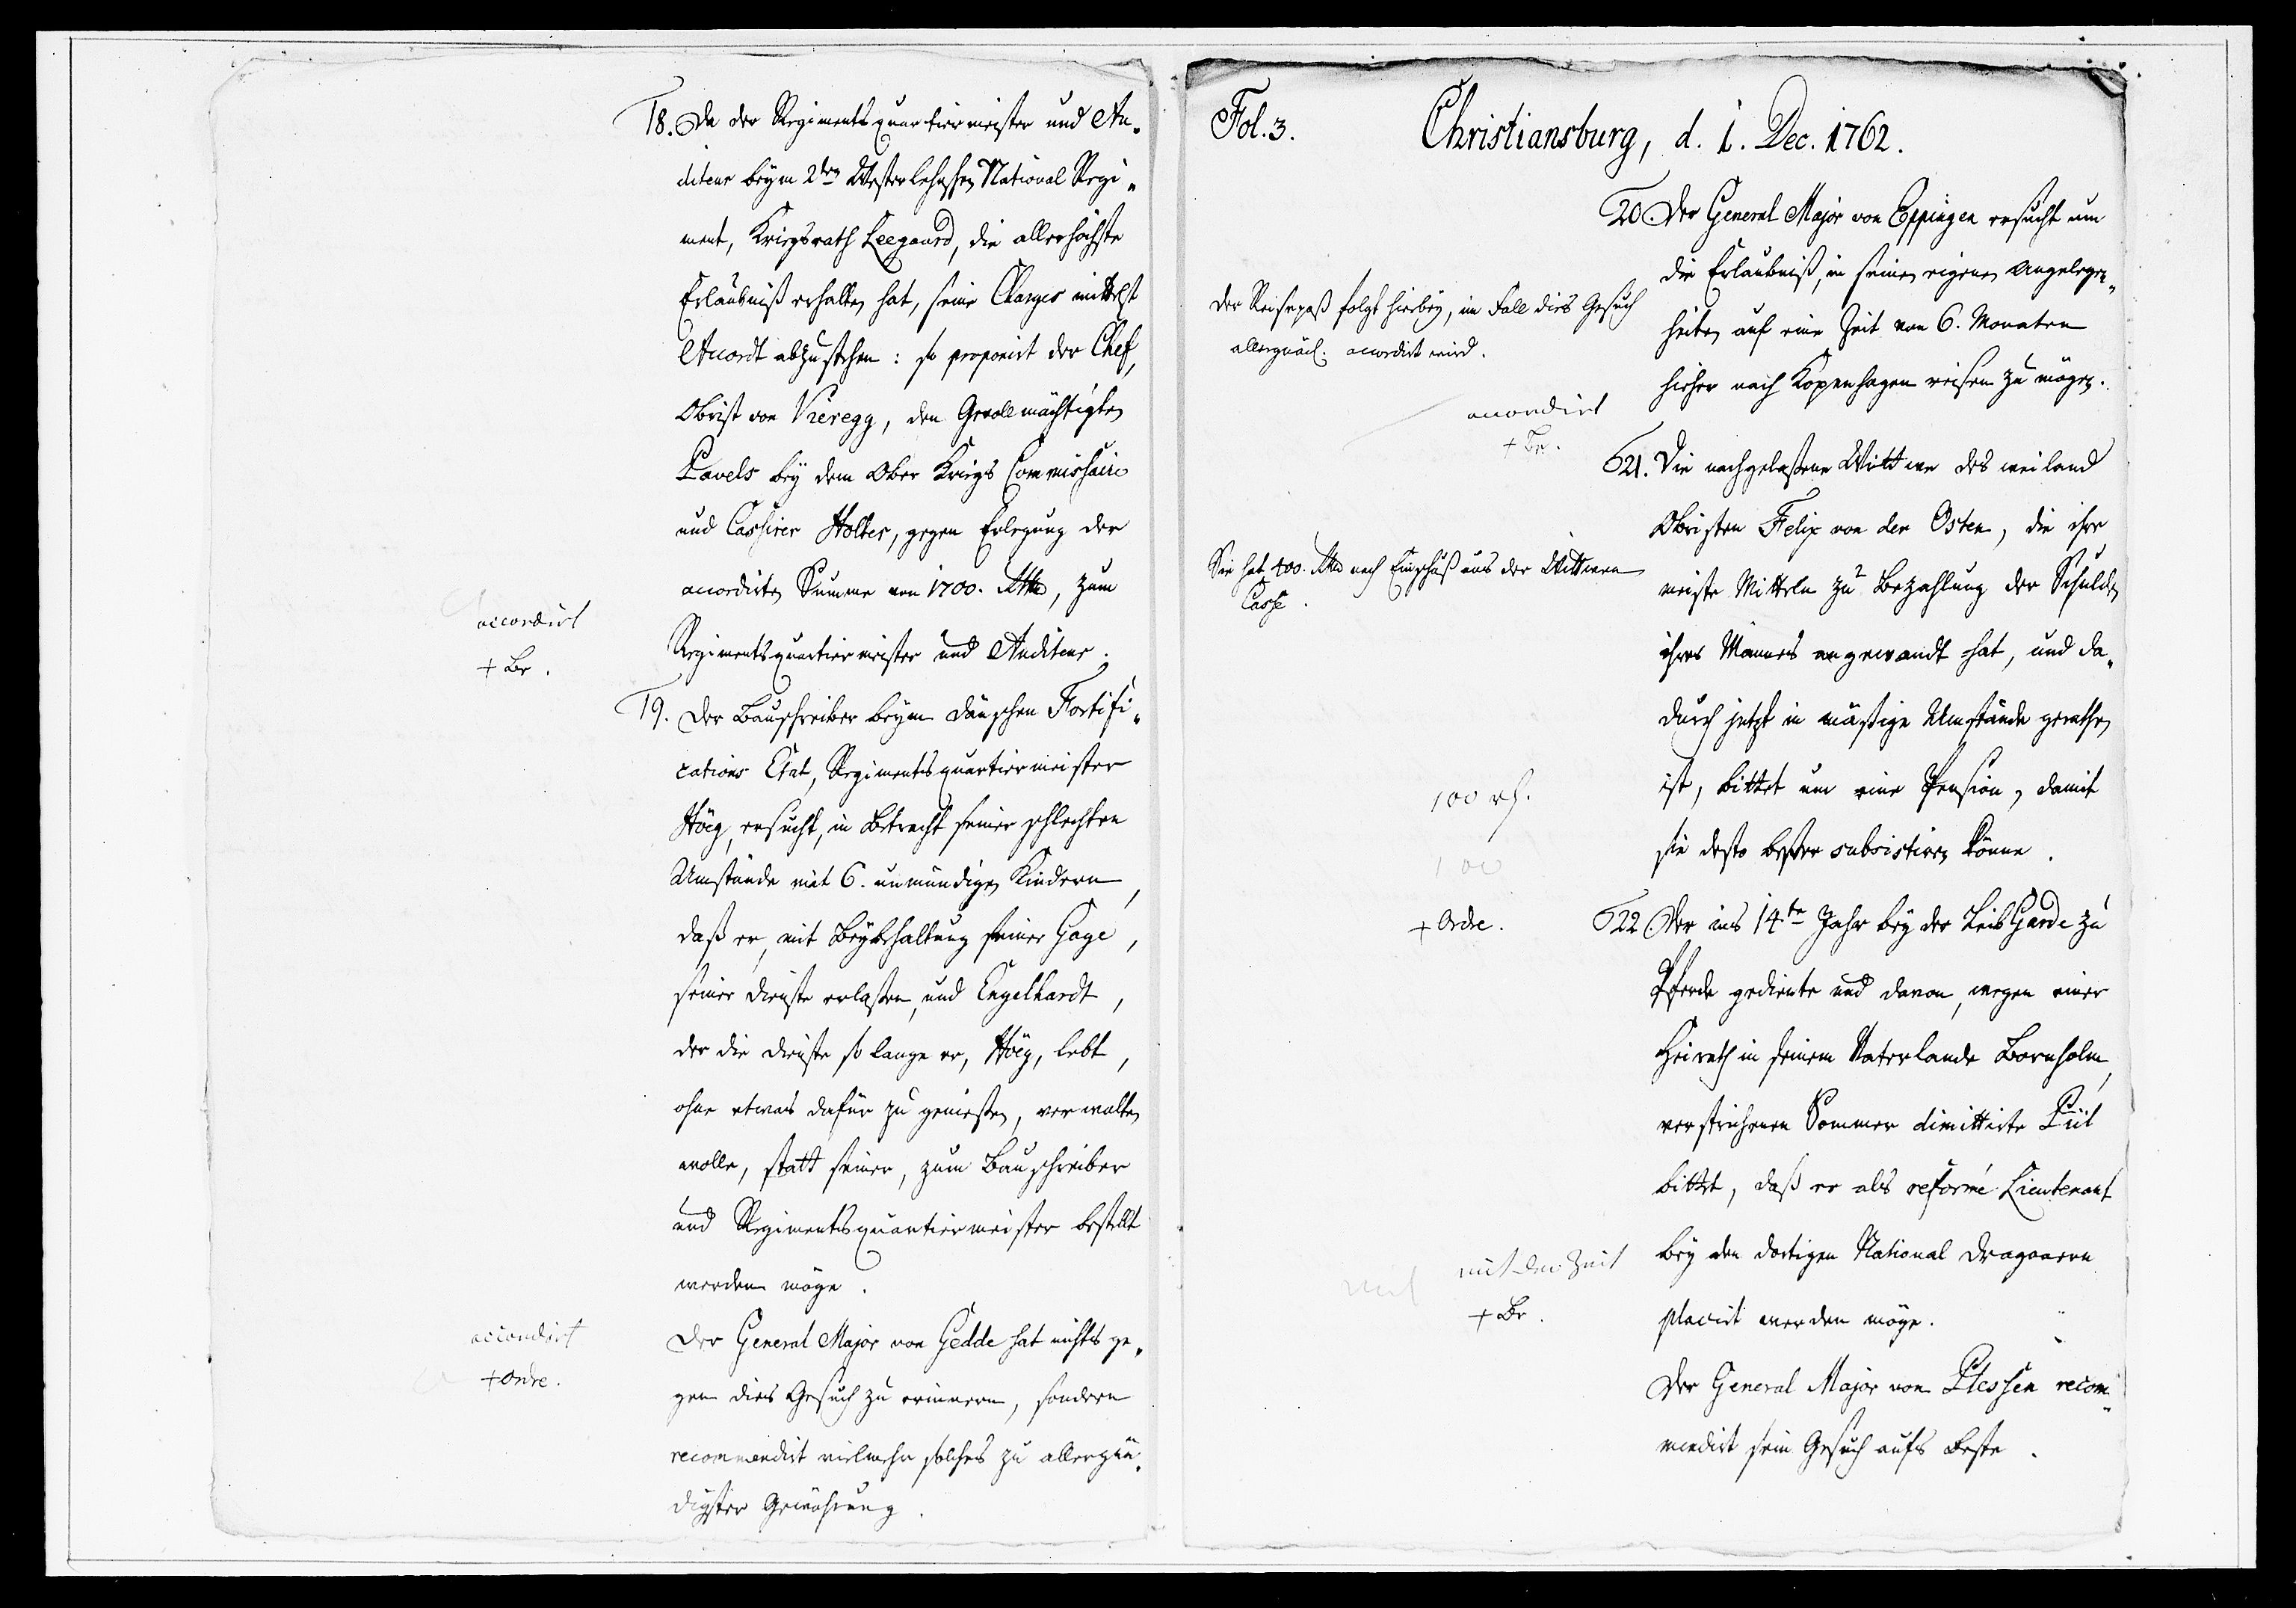 18. Da der Regimentsquartiermeister und Au-
diteur beym 2ten Westerlehnschen National Regi-
ment, Kriegsrath Leegaard, die allerhöchste
Erlaubniß erhalten hat, seine Charges mittelst
Accordt abzustehen: so proponirt der Chef,
Obrist von Vieregg, den Gevollmächtigten
Pavels bey dem Ober Kriegs Commissaire
und Cassirer Holter, gegen Erlegung der
accordirten Summe von 1700. Rthlr, zum
Regimentsquartiermeister und Auditeur.
accordirt
+ Br.
19. Der Bauschreiber beym dänschen Fortifi-
cations Etat, Regimentsquartiermeister
Höeg, ersucht, in Betracht seiner schlechten
Umstände mit 6. unmündigen Kindern,
daß er, mit Beybehaltung seiner Gage,
seiner Dienste erlaßen, und Engelhardt,
der die Dienste so lange er, Höeg, lebt,
ohne etwas dafür zu genießen, verwalten
wolle, statt seiner, zum Bauschreiber
und Regimentsquartiermeister bestellt
werden möge.
Der General Major von Gedde hat nichts ge-
gen dies Gesuch zu erinnern, sondern
recommendirt vielmehr solches zu allergnä-
digster Gewährung.
accordirt
+ Ordre.
Fol. 3.
Christiansburg, d. 1. Dec. 1762.
20. Der General Major von Eppingen ersucht um
die Erlaubniß, in seinen eigenen Angelegen-
heiten auf eine Zeit von 6. Monaten
hieher nach Kopenhagen reisen zu mögen.
Der Reisepaß folgt hierbey, im Fall dies Gesuch
allergnäd. accordirt wird.
accordirt
+ Br.
21. Die nachgelaßene Wittwe des weiland
Obristen Felix von der Osten, die ihre
meiste Mitteln zu Bezahlung der Schulden
ihres Mannes angewandt hat, und da-
durch jetzt in mäßige Umstände gerathen
ist, bittet um eine Pension, damit
sie desto beßer subsistiren könne.
Sie hat 400. Rthlr nach Einschuß aus der Wittwen
Casse.
100 rh.
100
+ Ordre.
22. Der ins 14te Jahr bey der Leib Garde zu
Pferde gediente und davon, wegen einer
Heirath in seinem Vaterlande Bornholm,
verstrichenen Sommer dimittirte Piil
bittet, daß er als reformé Lieutenant
bey den dortigen National Dragonern
placirt werden möge.
Der General Major von Plessen recom-
mendirt sein Gesuch aufs Beste.
mit der Zeit
+ Br.